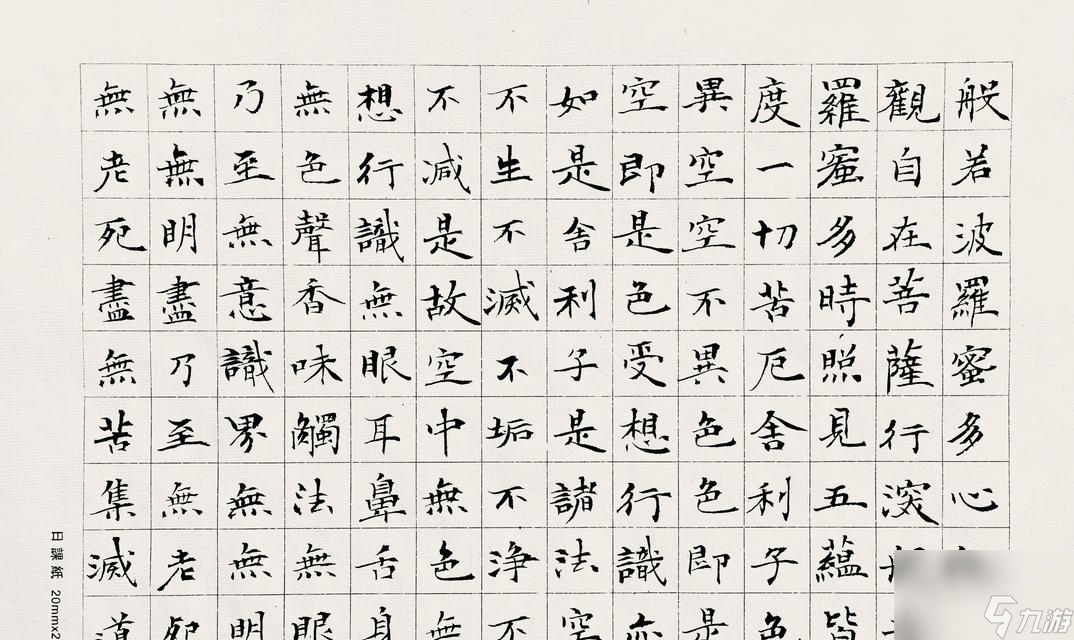 般若波羅蜜多心
觀自在菩薩行深
羅蜜多時照見五蘊皆
度一切苦厄舍利子色
異空空不異色色即是
空即是色受想行識亦
如是舍利子是諸法空
不生不滅不垢不浄不
不減是故空中無色無
想行識無眼耳鼻舌身
無色聲香味觸法無眼
乃至無意識界無無明
無無明盡乃至無老死
無老死盡無苦集滅道
日課紙 20mmx2
九游